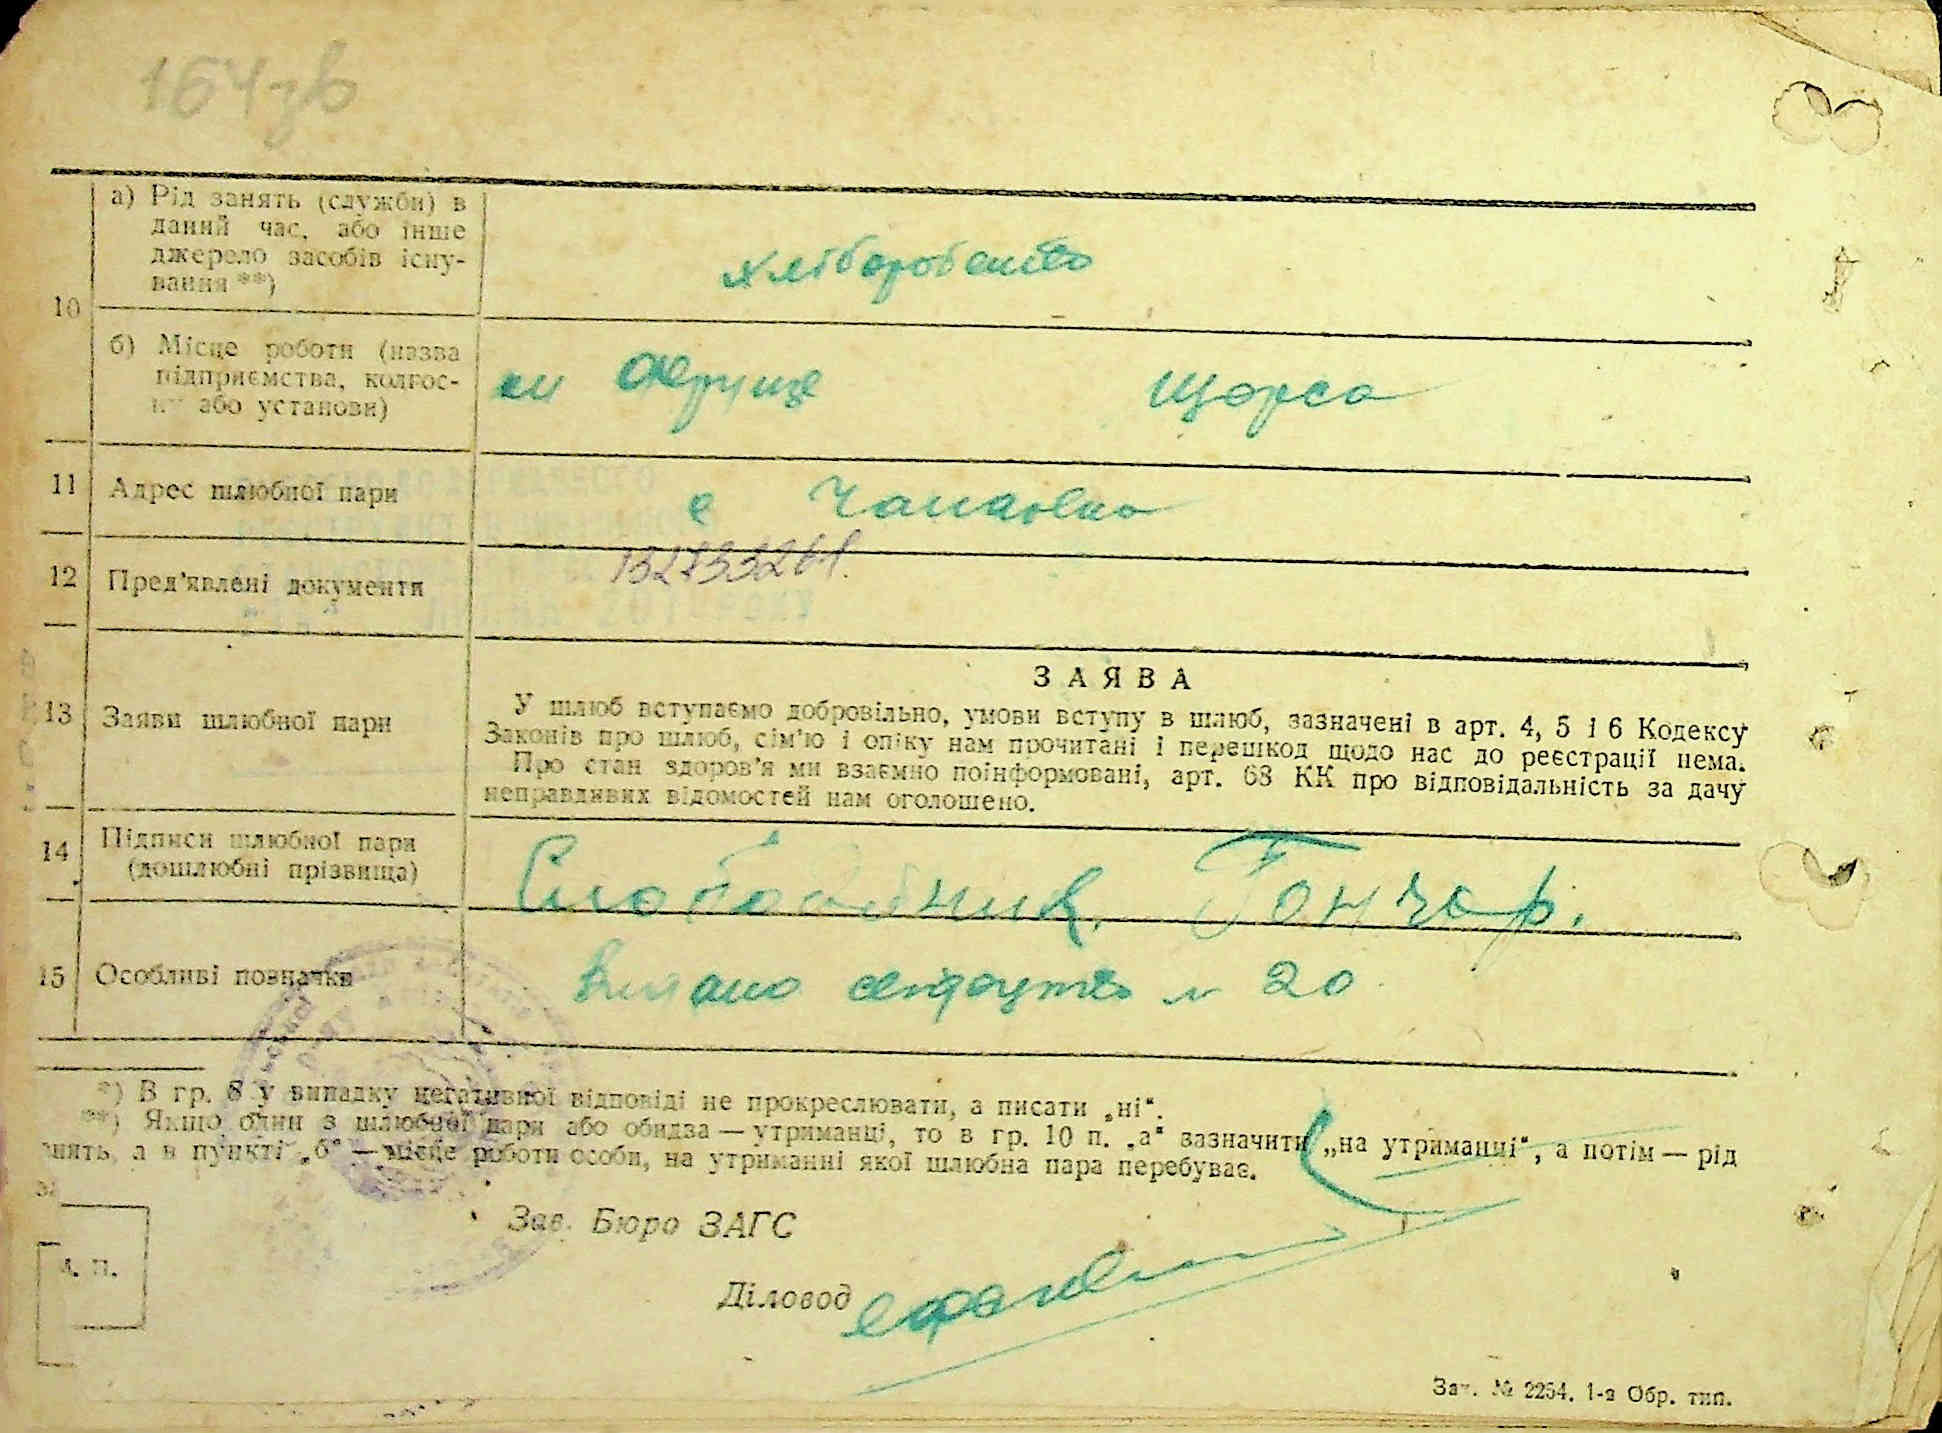 164зв
10
а) Рід занять (служби) в
даний час, або інше
джерело засобів існу-
вання **)
хліборобство
б) Місце роботи (назва
підприємства, колгос-
пу або установи)
Щорса
11 Адрес шлюбної пари
с
12 Пред'явлені документи
13 Заяви шлюбної пари
ЗАЯВА
У шлюб вступаємо добровільно, умови вступу в шлюб, зазначені в арт. 4, 5 і 6 Кодексу
Законів про шлюб, сім'ю і опіку нам прочитані і перешкод щодо нас до реєстрації нема.
Про стан здоров'я ми взаємно поінформовані, арт. 68 КК про відповідальність за дачу
неправдивих відомостей нам оголошено.
14 Підписи шлюбної пари
(дошлюбні прізвища)
Гончар.
15 Особливі позначки
Видано свідоцтво № 20
*) В гр. 8 у випадку негативної відповіді не прокреслювати, а писати „ні“.
**) Якщо один з шлюбної пари або обидва — утриманці, то в гр. 10 п. „а“ зазначити „на утриманні“, а потім — рід
занять, а в пункті „б“ — місце роботи особи, на утриманні якої шлюбна пара перебуває.
М. П.
Зав. Бюро ЗАГС
Діловод
Зат. № 2254. 1-а Обр. тип.